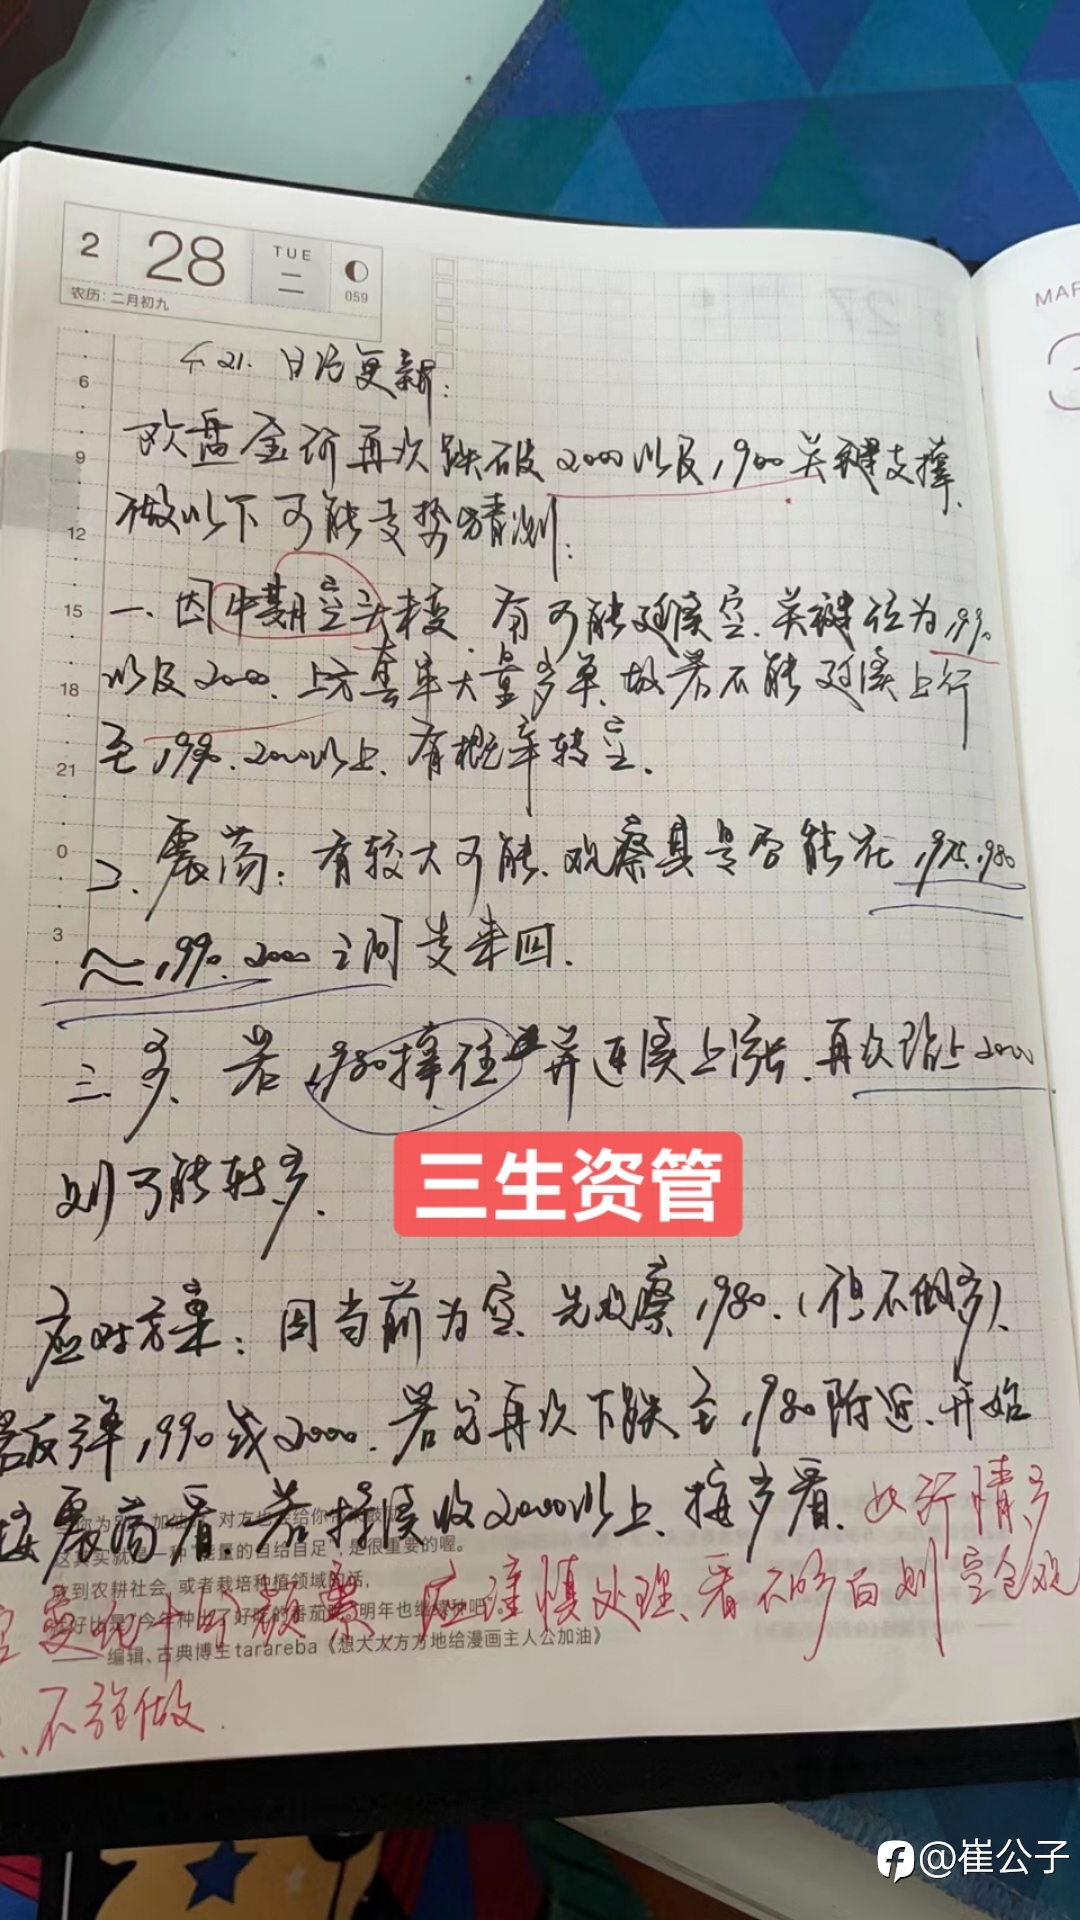 2 28 TUE 二 059
农历：二月初九
27
MAR
3
6
9
12
15
18
21
0
3
4.21. 日内更新:
欧盘金价再次跌破2000以及1,980关键支撑.
做以下可能走势猜测:
一、因中期空头未变,有可能延续空.关键位为1,990
以及2000.上方套牢大量多单.故若不能延续上行
至1990.2000以上.有概率转空.
二、震荡: 有较大可能.观察其是否能在1,975.1,980
~1,990.2000之间走来回.
三、多、若1,980撑住 并连续上涨.再次站上2000
则可能转多.
三生资管
应对方案: 因当前为空.先观察1,980.(但不做多).
若反弹1,990或2000.若守再次下跌至1,980附近、开始
按震荡看.若持续收2000以上、按多看. 此行情多
对方也会给你带来鼓励。
这其实就是一种“能量的自给自足”，是很重要的喔。
放到农耕社会，或者栽培种植领域的话，
空变化十分频繁 应谨慎处理、看不明白则空仓观
编辑、古典博主tarareba《想大大方方地给漫画主人公加油》
、不强做.
@崔公子